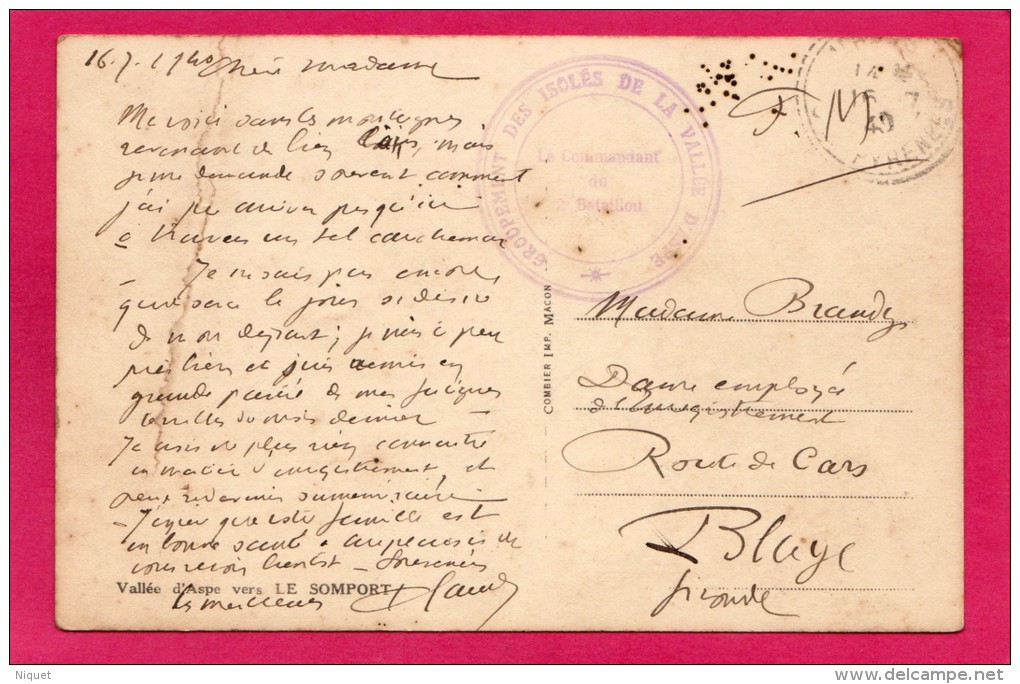 16.7.1940 Chère madame
Me voici dans les montagnes
revenant de bien loin, mais
je me demande souvent comment
j'ai pu arriver jusqu'ici
à travers un tel cauchemar
Je ne sais pas encore
que sera le jour
de mon départ ; je suis à peu
près bien et suis remis en
grande partie de mes fatigues
terribles du mois dernier
Je crois ne plus rien connaître
en matière d'enregistrement, et
peux redevenir surnuméraire
J'espère que votre famille est
en bonne santé
vous revoir bientôt
les meilleurs
Vallée d'Aspe vers LE SOMPORT
COMBIER IMP. MACON
GROUPEMENT DES ISOLÉS DE LA VALLÉE D'ASPE
Le Commandant
du
2e Bataillon
F. M.
40
PYRENEES
Madame Brandy
Dame employée
d'Enregistrement
Route de Cars
Blaye
Gironde
Niquet
delcampe.net